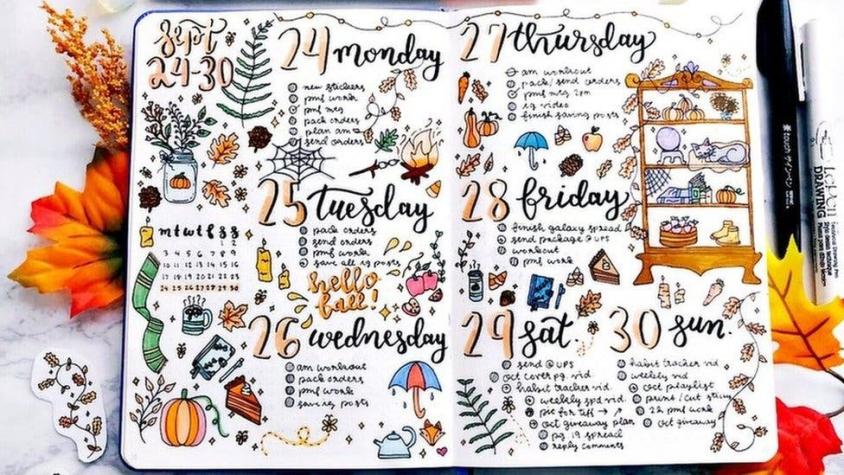 Sept
24-30
24 monday
new stickers
pmb work
pmb mtg
pack orders
plan am
send orders
25 tuesday
pack orders
send orders
pmb work
save all ig posts
hello
fall!
m t w t f s s
1 2
3 4 5 6 7 8 9
10 11 12 13 14 15 16
17 18 19 20 21 22 23
24 25 26 27 28 29 30
26 wednesday
am workout
pack orders
pmb work
save ig posts
27 thursday
am workout
pack/send orders
pmb mtg 2pm
ig video
finish saving posts
28 friday
finish galaxy spread
send package @ UPS
workout
pmb work
29 sat.
send @ UPS
oct cover pg. vid.
habit tracker vid.
weekly spd vid.
pic for tiff →
oct giveaway plan
pg. 19 spread
reply comments
30 sun.
habit tracker vid
weekly vid
oct playlist
print/cut
2h pmb work
oct giveaway
touch
DRAWING